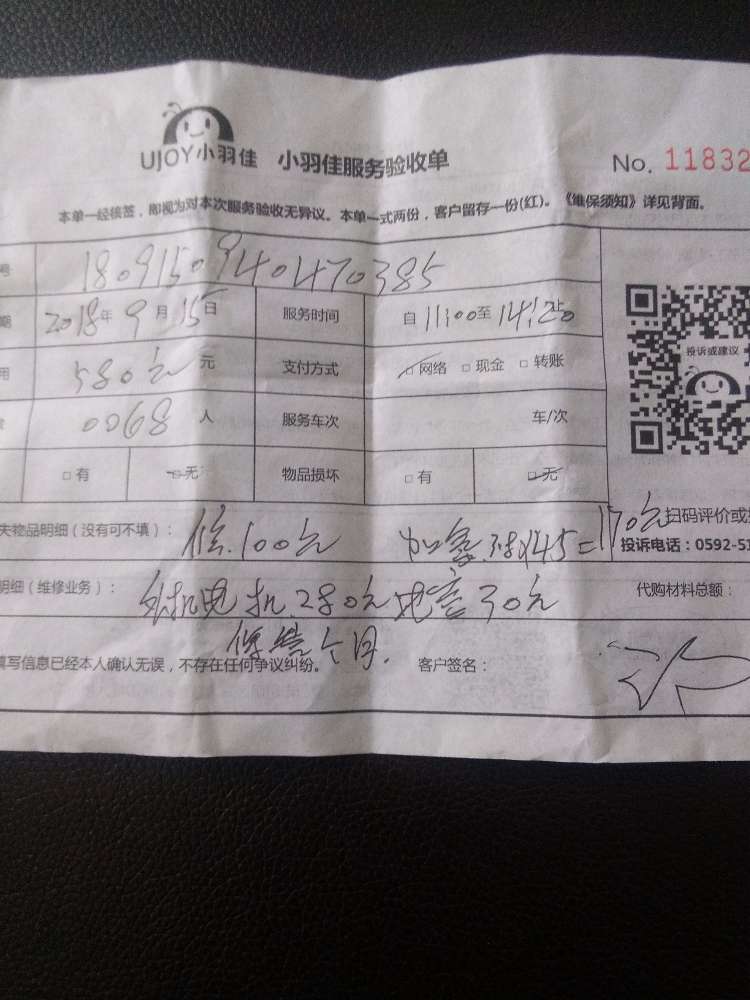 UJOY小羽佳 小羽佳服务验收单 No. 11832
本单一经核签，即视为对本次服务验收无异议。本单一式两份，客户留存一份(红)。《维保须知》详见背面。
号 1809150940470385
期 2018年9月15日 服务时间 自11:00至14:20
用 580元 元 支付方式 □网络 □现金 □转账
投诉或建议
0068 人 服务车次 车/次
□有 □无 物品损坏 □有 □无
失物品明细（没有可不填）： 100元 170元 扫码评价或
投诉电话：0592-51
明细（维修业务）： 外机电机280元 电容30元 代购材料总额：
填写信息已经本人确认无误，不存在任何争议纠纷。 个月. 客户签名：